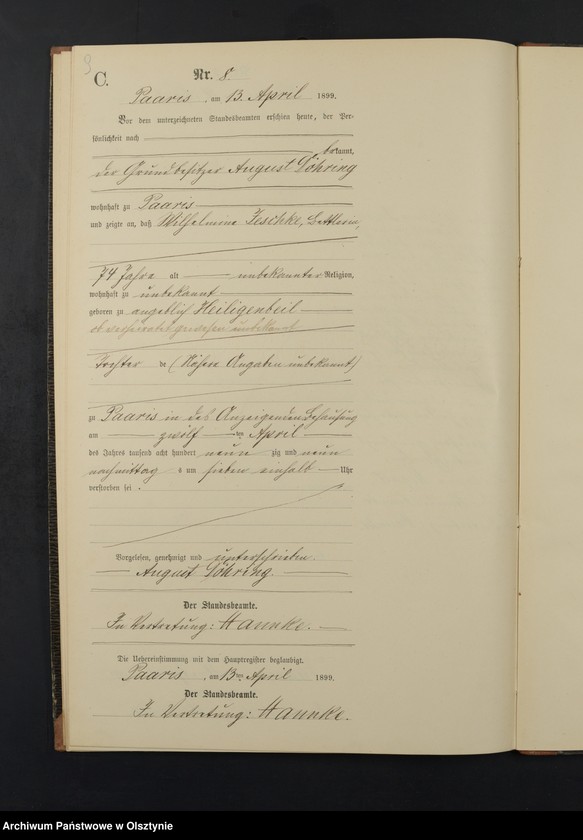 C.
Nr. 8.
Paaris, am 13. April 1899.
Vor dem unterzeichneten Standesbeamten erschien heute, der Per-
sönlichkeit nach
bekannt,
der Grundbesitzer August Döhring
wohnhaft zu Paaris
und zeigte an, daß Wilhelmine Jeschke, Bettlerin,
74 Jahre alt unbekannter Religion,
wohnhaft zu unbekannt
geboren zu angeblich Heiligenbeil
ob verheiratet gewesen unbekannt
Tochter de (Nähere Angaben unbekannt)
zu Paaris in des Anzeigenden Behausung
am zwölf ten April
des Jahres tausend acht hundert neun zig und neun
nachmittag s um sieben einhalb Uhr
verstorben sei.
Vorgelesen, genehmigt und unterschrieben.
August Döhring.
Der Standesbeamte.
In Vertretung: Hannke.
Die Uebereinstimmung mit dem Hauptregister beglaubigt.
Paaris, am 13ten April 1899.
Der Standesbeamte.
In Vertretung: Hannke.
Archiwum Państwowe w Olsztynie